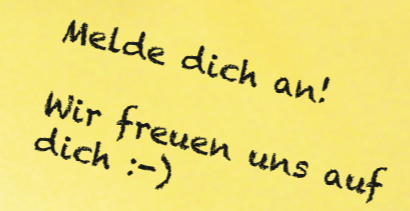 Melde dich an!
Wir freuen uns auf
dich :-)